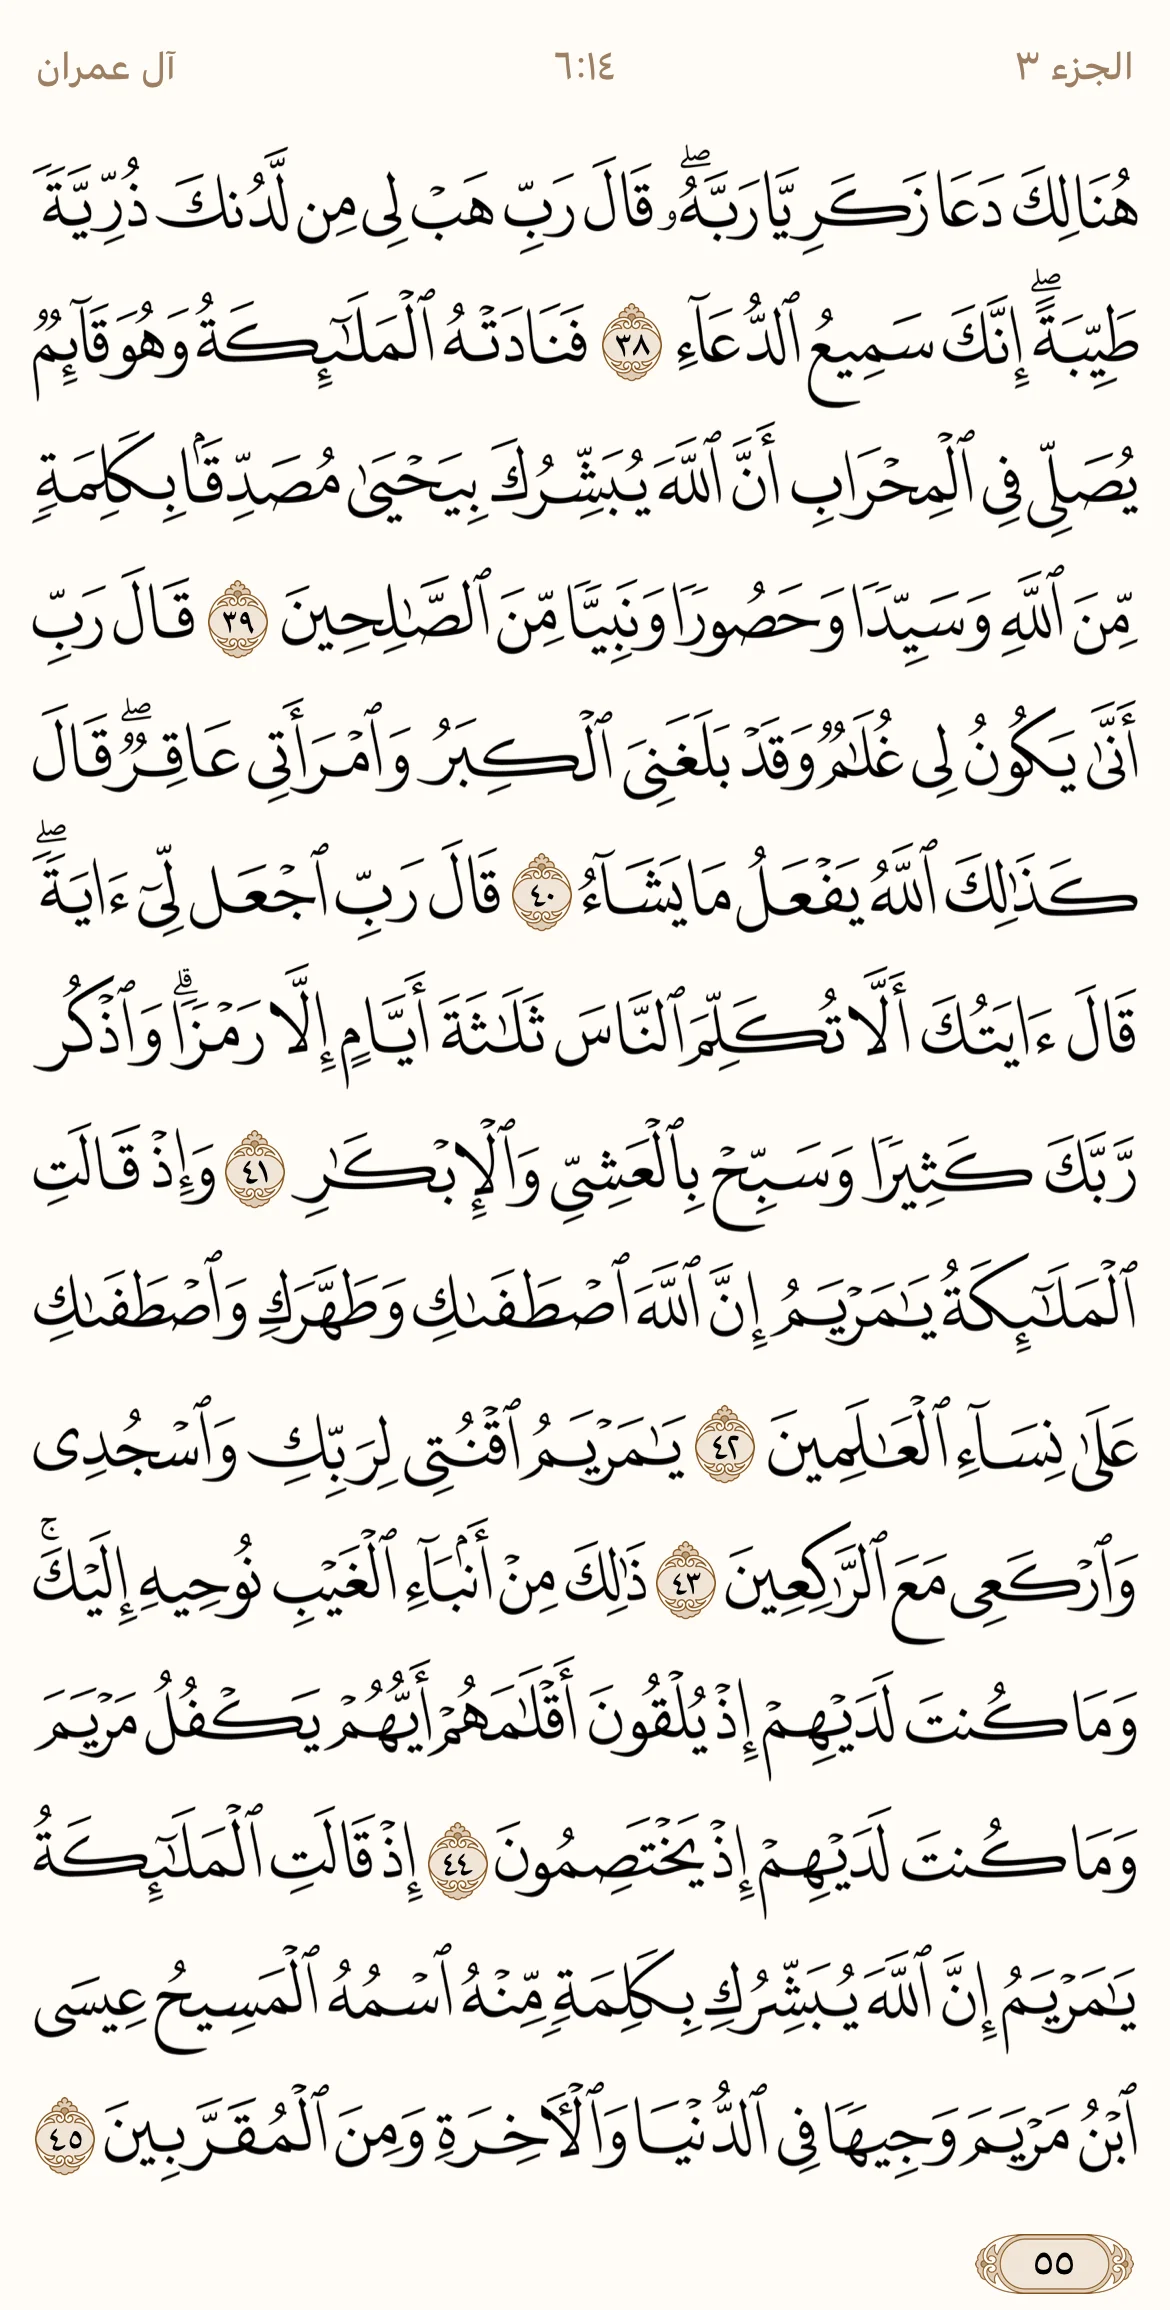 الجزء ٣
٦:١٤
آل عمران
هُنَالِكَ دَعَا زَكَرِيَّا رَبَّهُۥۖ قَالَ رَبِّ هَبْ لِى مِن لَّدُنكَ ذُرِّيَّةً
طَيِّبَةًۖ إِنَّكَ سَمِيعُ ٱلدُّعَآءِ ٣٨ فَنَادَتْهُ ٱلْمَلَـٰٓئِكَةُ وَهُوَ قَآئِمٌ
يُصَلِّى فِى ٱلْمِحْرَابِ أَنَّ ٱللَّهَ يُبَشِّرُكَ بِيَحْيَىٰ مُصَدِّقًۢا بِكَلِمَةٍ
مِّنَ ٱللَّهِ وَسَيِّدًا وَحَصُورًا وَنَبِيًّا مِّنَ ٱلصَّـٰلِحِينَ ٣٩ قَالَ رَبِّ
أَنَّىٰ يَكُونُ لِى غُلَـٰمٌ وَقَدْ بَلَغَنِىَ ٱلْكِبَرُ وَٱمْرَأَتِى عَاقِرٌۖ قَالَ
كَذَٰلِكَ ٱللَّهُ يَفْعَلُ مَا يَشَآءُ ٤٠ قَالَ رَبِّ ٱجْعَل لِّىٓ ءَايَةًۖ
قَالَ ءَايَتُكَ أَلَّا تُكَلِّمَ ٱلنَّاسَ ثَلَـٰثَةَ أَيَّامٍ إِلَّا رَمْزًاۗ وَٱذْكُر
رَّبَّكَ كَثِيرًا وَسَبِّحْ بِٱلْعَشِىِّ وَٱلْإِبْكَـٰرِ ٤١ وَإِذْ قَالَتِ
ٱلْمَلَـٰٓئِكَةُ يَـٰمَرْيَمُ إِنَّ ٱللَّهَ ٱصْطَفَىٰكِ وَطَهَّرَكِ وَٱصْطَفَىٰكِ
عَلَىٰ نِسَآءِ ٱلْعَـٰلَمِينَ ٤٢ يَـٰمَرْيَمُ ٱقْنُتِى لِرَبِّكِ وَٱسْجُدِى
وَٱرْكَعِى مَعَ ٱلرَّٰكِعِينَ ٤٣ ذَٰلِكَ مِنْ أَنۢبَآءِ ٱلْغَيْبِ نُوحِيهِ إِلَيْكَۚ
وَمَا كُنتَ لَدَيْهِمْ إِذْ يُلْقُونَ أَقْلَـٰمَهُمْ أَيُّهُمْ يَكْفُلُ مَرْيَمَ
وَمَا كُنتَ لَدَيْهِمْ إِذْ يَخْتَصِمُونَ ٤٤ إِذْ قَالَتِ ٱلْمَلَـٰٓئِكَةُ
يَـٰمَرْيَمُ إِنَّ ٱللَّهَ يُبَشِّرُكِ بِكَلِمَةٍ مِّنْهُ ٱسْمُهُ ٱلْمَسِيحُ عِيسَى
ٱبْنُ مَرْيَمَ وَجِيهًا فِى ٱلدُّنْيَا وَٱلْـَٔاخِرَةِ وَمِنَ ٱلْمُقَرَّبِينَ ٤٥
٥٥